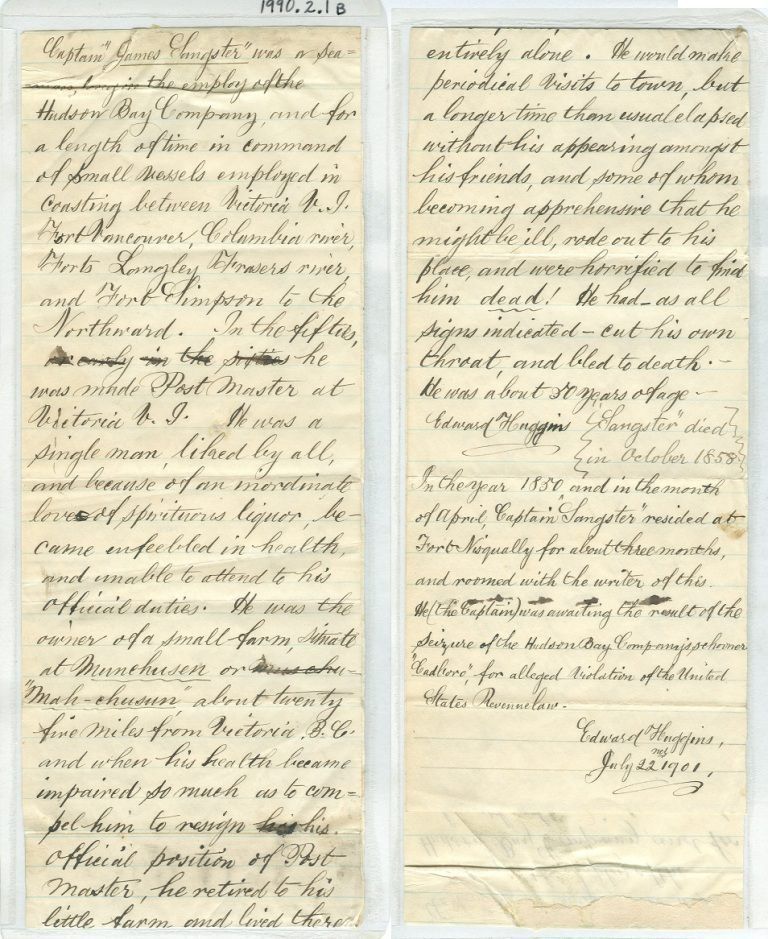 1990.2.1B
Captain "James Sangster" was a sea=
man, long in the employ of the
Hudson Bay Company, and for
a length of time in command
of small vessels employed in
coasting between Victoria V. I.
Fort Vancouver, Columbia river,
Forts Langley Frasers river,
and Fort Simpson to the
Northward. In the fifties,
or early in the sixties he
was made Post Master at
Victoria V. I. He was a
single man, liked by all,
and because of an inordinate
love of spirituous liquor, be-
came enfeebled in health,
and unable to attend to his
official duties. He was the
owner of a small farm, situate
at Munchusen or
"Mah-chusun", about twenty
five miles from Victoria, B. C.
and when his health became
impaired so much as to com=
pel him to resign his his
official position of Post
Master, he retired to his
little farm and lived there
entirely alone. He would make
periodical visits to town, but
a longer time than usual elapsed
without his appearing amongst
his friends, and some of whom
becoming apprehensive that he
might be ill, rode out to his
place, and were horrified to find
him dead! He had - as all
signs indicated - cut his own
throat, and bled to death. -
He was about 50 years of age -
Edward Huggins "Sangster" died
in October 1858
In the year 1850 and in the month
of April, Captain "Sangster" resided at
Fort Nisqually for about three months,
and roomed with the writer of this.
He (the Captain) was awaiting the result of the
seizure of the Hudson Bay Companys schooner
"Cadboro", for alleged Violation of the United
States Revenue law -
Edward Huggins,
July 22nd 1901,